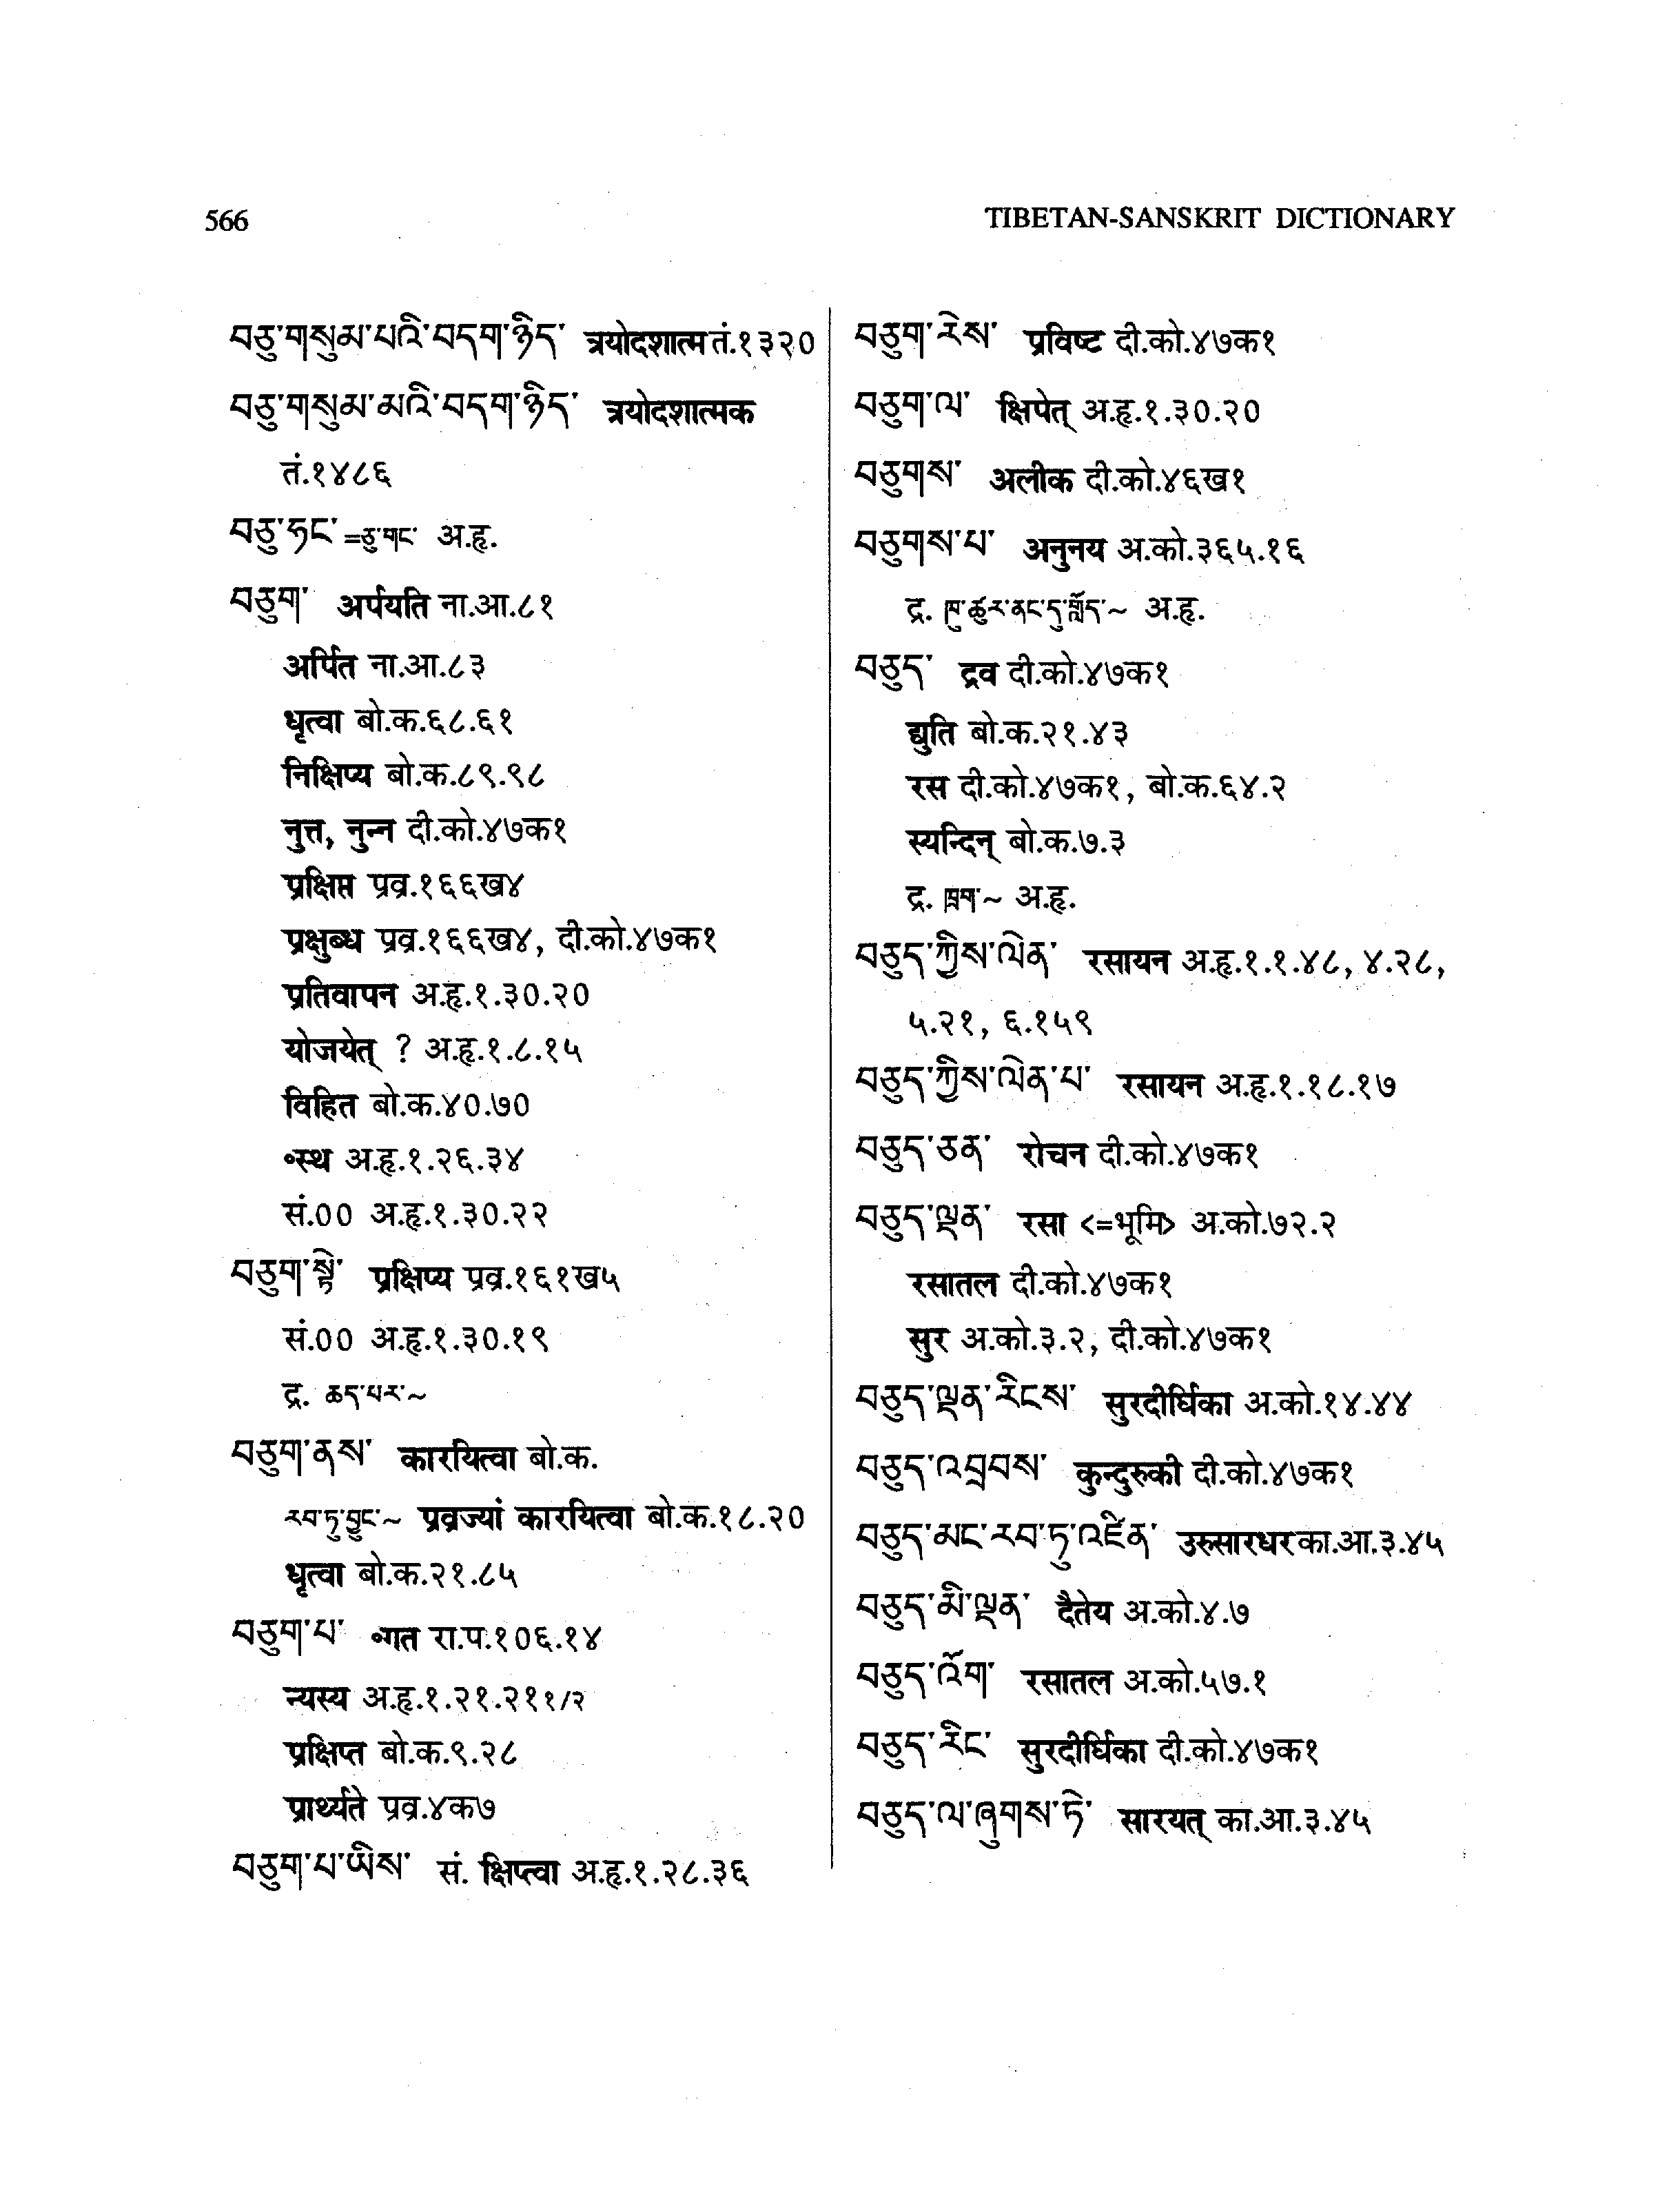 566
TIBETAN-SANSKRIT DICTIONARY
བཅུ་གསུམ་པའི་བདག་ཉིད་ त्रयोदशात्म तं.१३२०
བཅུ་གསུམ་མའི་བདག་ཉིད་ त्रयोदशात्मक
तं.१४८६
བཅུ་ཏང་ =ཅུ་གང་ अ.हृ.
བཅུག་ अर्पयति ना.आ.८१
अर्पित ना.आ.८३
धृत्वा बो.क.६८.६१
निक्षिप्य बो.क.८९.९८
नुत्त, नुन्न दी.को.४७क१
प्रक्षिप्त प्रव्र.१६६ख४
प्रक्षुब्ध प्रव्र.१६६ख४, दी.को.४७क१
प्रतिवापन अ.हृ.१.३०.२०
योजयेत् ? अ.हृ.१.८.१५
विहित बो.क.४०.७०
॰स्थ अ.हृ.१.२६.३४
सं.00 अ.हृ.१.३०.२२
བཅུག་སྟེ་ प्रक्षिप्य प्रव्र.१६१ख५
सं.00 अ.हृ.१.३०.१९
द्र. ཆད་པར་~
བཅུག་ནས་ कारयित्वा बो.क.
རབ་ཏུ་བྱུང་~ प्रव्रज्यां कारयित्वा बो.क.१८.२०
धृत्वा बो.क.२१.८५
བཅུག་པ་ ॰गत रा.प.१०६.१४
न्यस्य अ.हृ.१.२१.२११/२
प्रक्षिप्त बो.क.९.२८
प्रार्थ्यते प्रव्र.४क७
བཅུག་པ་ཡིས་ सं. क्षिप्त्वा अ.हृ.१.२८.३६
བཅུག་རེས་ प्रविष्ट दी.को.४७क१
བཅུག་ལ་ क्षिपेत् अ.हृ.१.३०.२०
བཅུགས་ अलीक दी.को.४६ख१
བཅུགས་པ་ अनुनय अ.को.३६५.१६
द्र. ཁུ་ཚུར་ནང་དུ་གློད་~ अ.हृ.
བཅུད་ द्रव दी.को.४७क१
द्युति बो.क.२१.४३
रस दी.को.४७क१, बो.क.६४.२
स्यन्दिन् बो.क.७.३
द्र. ཁྲག་~ अ.हृ.
བཅུད་ཀྱིས་ལེན་ रसायन अ.हृ.१.१.४८, ४.२८,
५.२१, ६.१५९
བཅུད་ཀྱིས་ལེན་པ་ रसायन अ.हृ.१.१८.१७
བཅུད་ཅན་ रोचन दी.को.४७क१
བཅུད་ལྡན་ रसा <=भूमि> अ.को.७२.२
रसातल दी.को.४७क१
सुर अ.को.३.२, दी.को.४७क१
བཅུད་ལྡན་རིངས་ सुरदीर्घिका अ.को.१४.४४
བཅུད་འབྲབས་ कुन्दुरुकी दी.को.४७क१
བཅུད་མང་རབ་ཏུ་འཛིན་ उरुसारधर का.आ.३.४५
བཅུད་མི་ལྡན་ दैतेय अ.को.४.७
བཅུད་འོག་ रसातल अ.को.५७.१
བཅུད་རིང་ सुरदीर्घिका दी.को.४७क१
བཅུད་ལ་ཞུགས་ཏེ་ सारयत् का.आ.३.४५